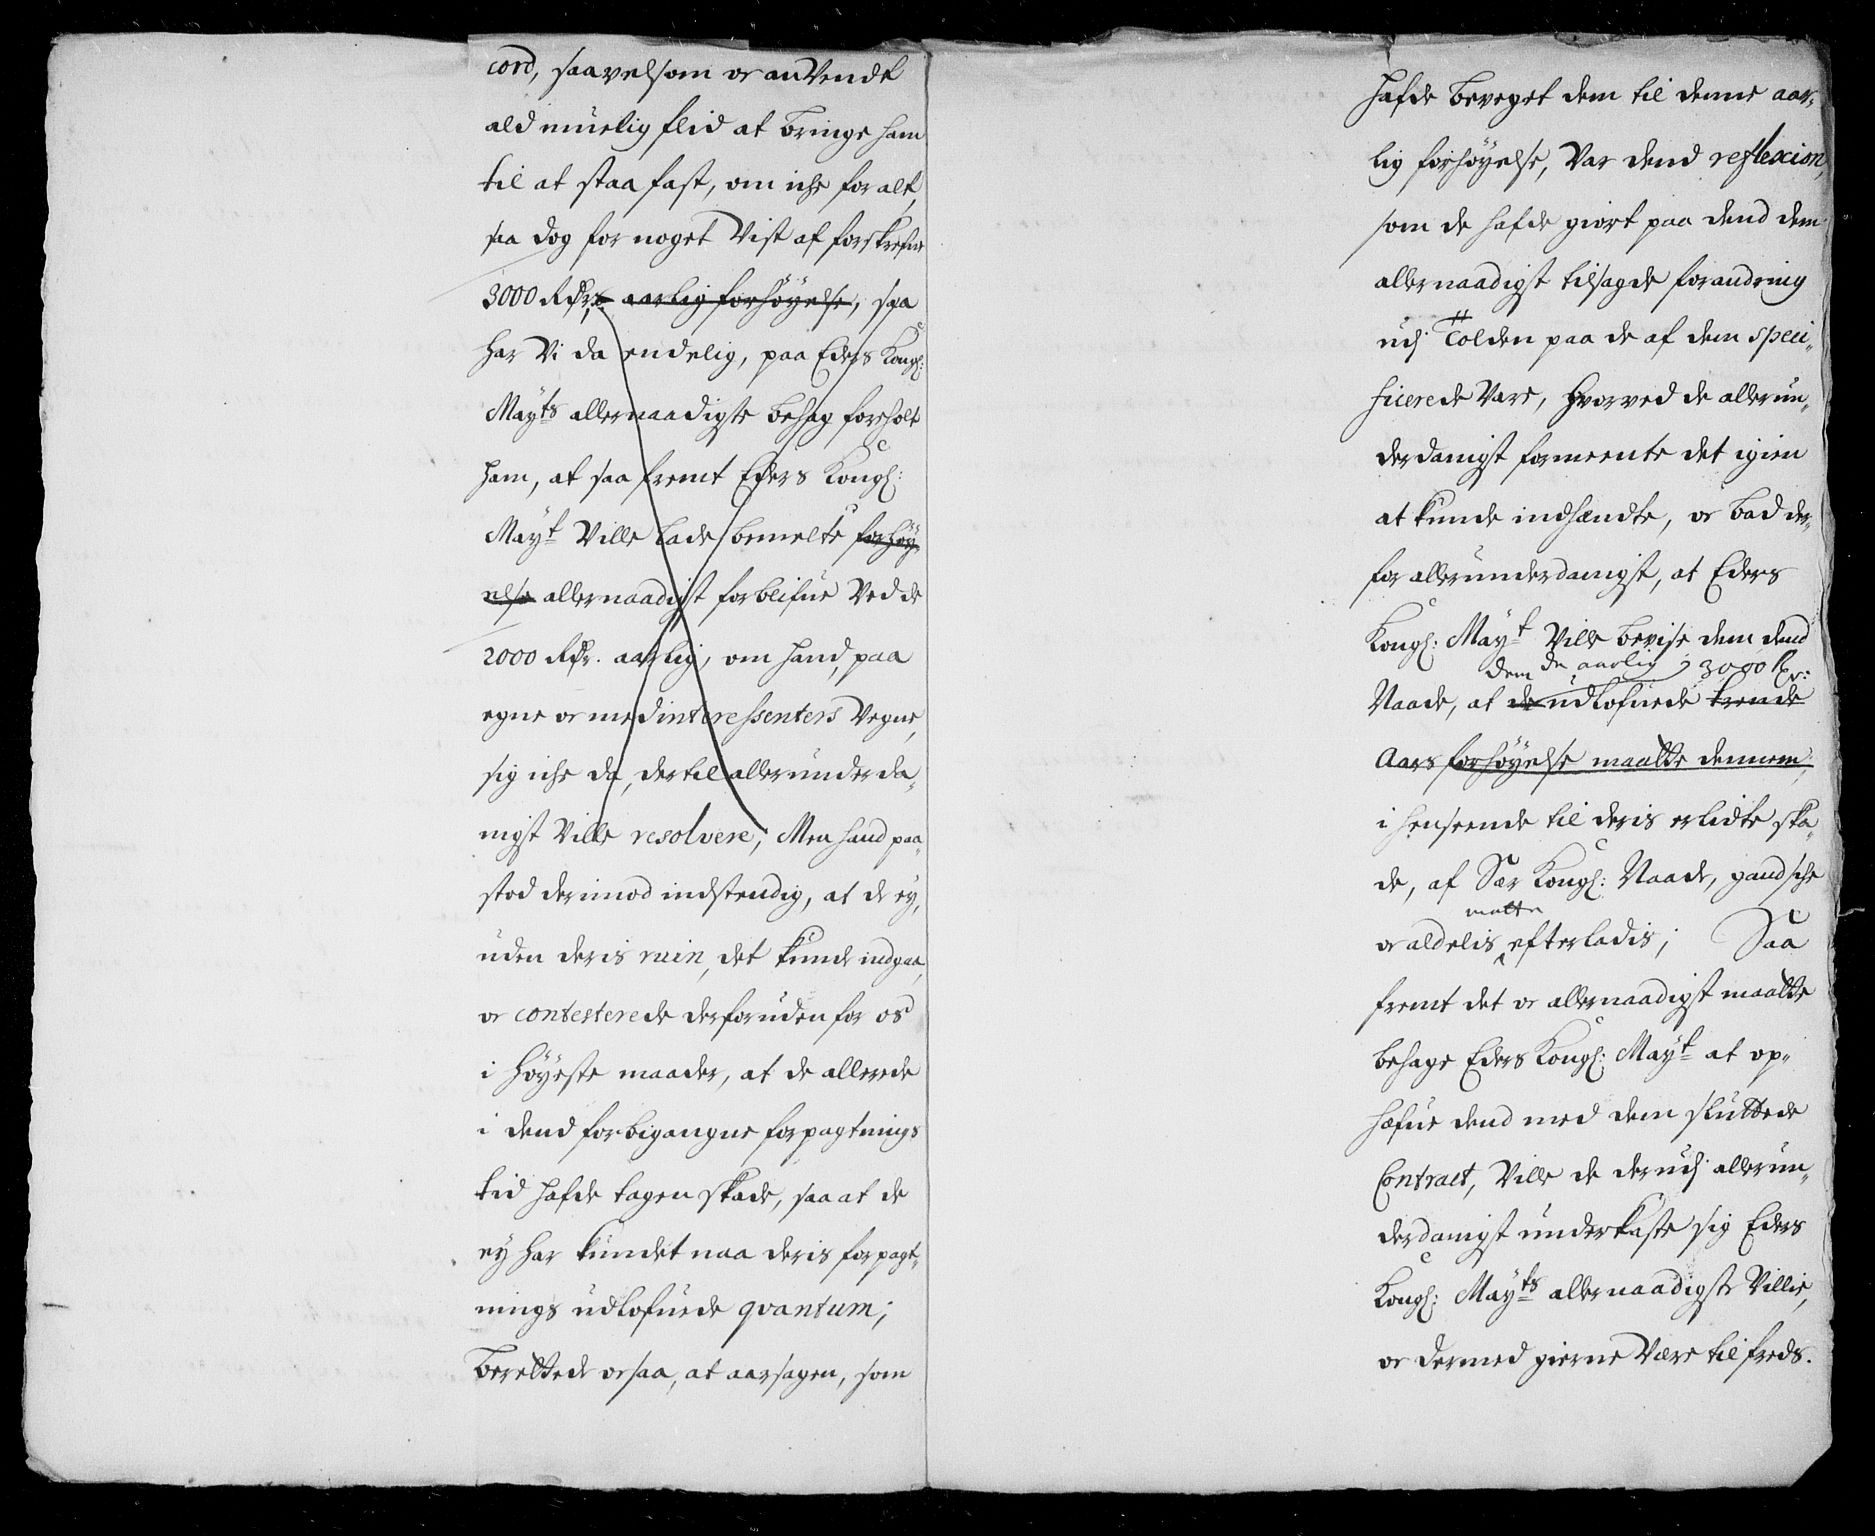 cord, saavelsom og anVendt
ald muelig flid at bringe ham
til at staa fast, om iche for alt,
saa dog for noget Vist af forskrefne
3000 Rdrs aarlig forhøyelse, saa
har Vi da endelig, paa Eders Kongl:
Mayts allernaadigste behag foreholt
ham, at saa fremt Eders Kongl:
Mayt Ville lade bemelte forhøy
else allernaadigst forblifue Ved de
2000 Rdr. aarlig, om hand, paa
egne og medinteressenters Vegne,
sig iche da, dertil allerunderda„
nigst Ville resolvere; Men hand paa„
stod derimod indstendig, at de ey,
uden deris ruin, det kunde indgaa,
og contesterede desforuden for os
i høyeste maader, at de allerede
i dend forbigangne forpagtnings
tid hafde tagen skade, saa at de
ey har kundet naa deris forpagt„
nings udlofuede qvantum;
Berettede ogsaa, at aarsagen, som
hafde beveget dem til denne aar„
lig forhøyelse, Var dend reflexion,
som de hafde giort paa dend dem
allernaadigst tilsagde forandring
udj Tolden paa de af dem speci„
ficerede Vare, hvorved de allerun„
derdanigst formeente det igien
at kunde indhændte, og bad der„
for allerunderdanigst, at Eders
Kongl: Mayt Ville bevise dem dend
dem de aarlig 3000 Rdr:
Naade, at de udlofuede trende
Aars forhøyelse maatte dennem,
i henseende til deris erlidte ska„
de, af Sær Kongl: Naade, gandsche
matte
og aldelis efterladis; Saa
fremt det og allernaadigst maatte
behage Eders Kongl: Mayt at op„
hæfue dend med dem sluttede
Contract, Ville de derudj allerun„
derdanigst underkaste sig Eders
Kongl: Mayts allernaadigste Villie,
og dermed gierne Være tilfreds.